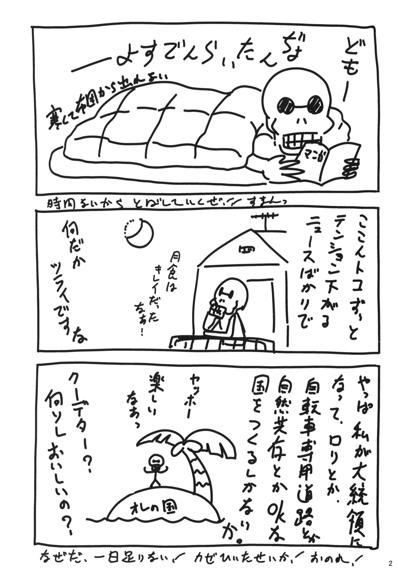 どもー
ぢょんたいらんですよー
寒くて布団から出れない
マンガ
時間ないから とばしていくぜ!! すまんっ
ここんトコずっと
テンション下がる
ニュースばかりで
月食は
キレイだった
なぁ!
何だか
ツライですな
やっぱ私が大統領に
なって、ロリとか
自転車専用道路とか
自然共存とかOKな
国をつくるしかないか。
ヤッホー
楽しい
なぁっ
オレの国
クーデター?
何ソレおいしいの?
なぜだ、一日足りない! カゼひいたせいか! おのれ!
2